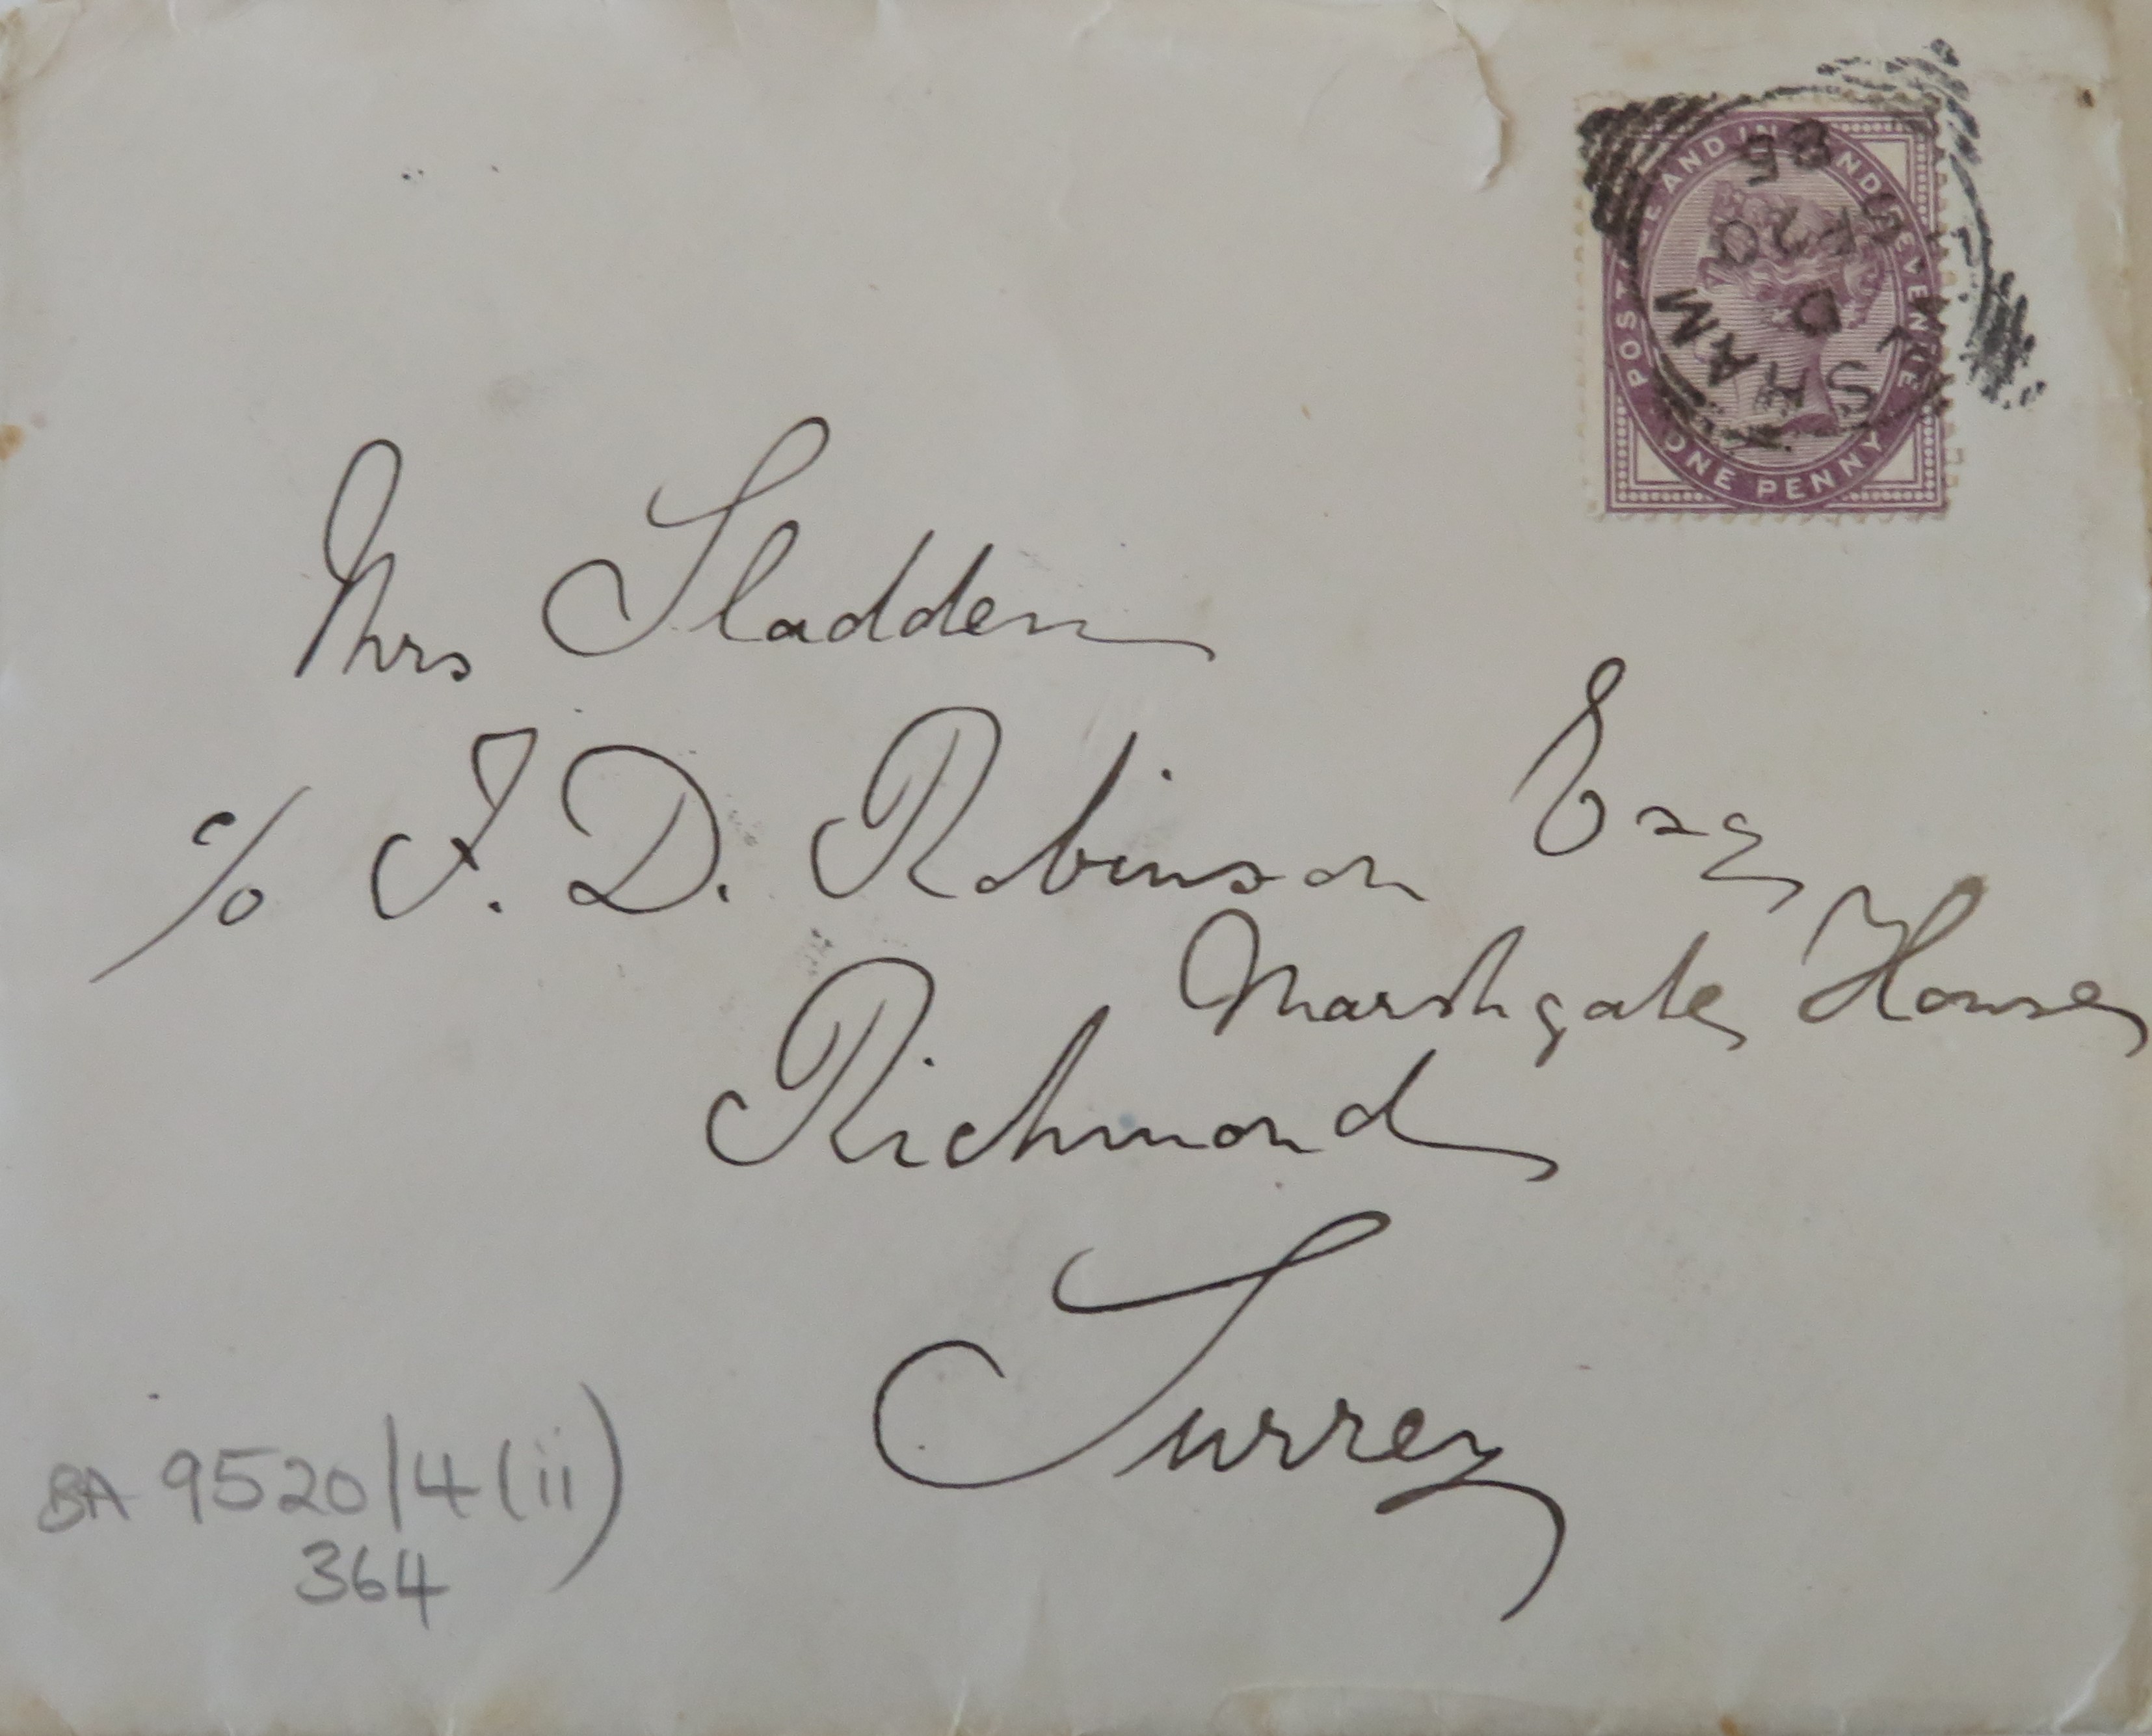 POSTAGE AND INLAND REVENUE
ONE PENNY
SHAM
D
AP 20
85
Mrs Sladden
c/o J. D. Robinson Esq
Marshgate House
Richmond
Surrey
BA 9520/4(ii)
364